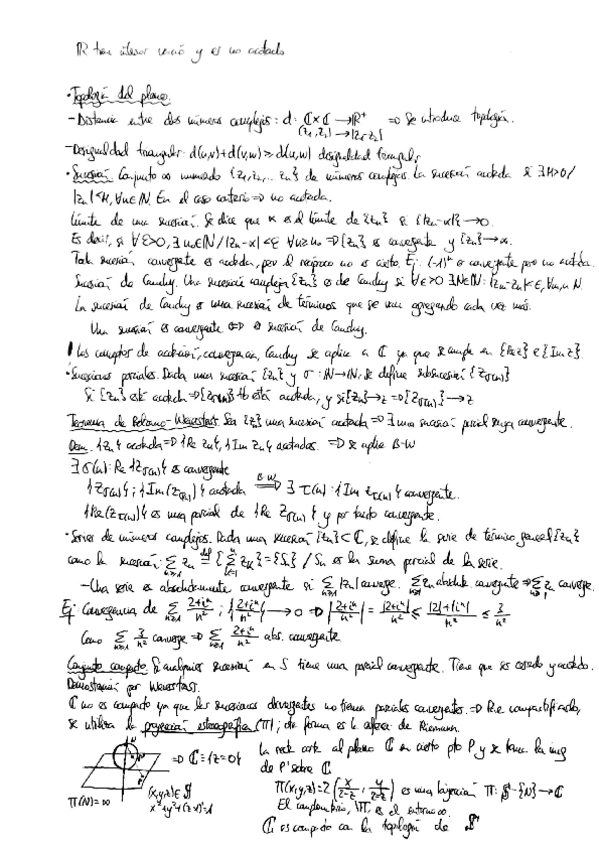 ℝ tiene interior vacío y es no acotado
• Topología del plano.
- Distancia entre dos números complejos: d: ℂ×ℂ → ℝ⁺ => Se introduce topología.
(z₁, z₂) → |z₁-z₂|
- Desigualdad triangular: d(u,v)+d(v,w) ≥ d(u,w) desigualdad triangular
• Sucesión Conjunto numerado {z₁, z₂, ... zn} de números complejos. La sucesión acotada si ∃ M>0/
|zn| < M, ∀n∈ℕ. En el caso contrario => no acotada.
Límite de una sucesión. Se dice que α es el límite de {zn} si |zn-α| → 0.
Es decir, si ∀ε>0, ∃ n₀∈ℕ / |zn-α| < ε ∀n≥n₀ => {zn} es convergente y {zn} → α.
Toda sucesión convergente es acotada, pero el recíproco no es cierto. Ej: (-1)ⁿ
Sucesión de Cauchy. Una sucesión compleja {zn} es de Cauchy si ∀ε>0 ∃N∈ℕ: |zm-zn| < ε, ∀m,n N
La sucesión de Cauchy es una sucesión de términos que se van agregando cada vez más.
Una sucesión es convergente <=> es sucesión de Cauchy.
! Los conceptos de acotación, convergencia, Cauchy se aplica a ℂ ya que se cumple en {Re z} e {Im z}.
• Sucesiones parciales. Dada una sucesión {zn} y σ: ℕ→ℕ, se define subsucesión {zσ(n)}
Si {zn} está acotada => {zσ(n)} tb está acotada, y si {zn} → z => {zσ(n)} → z
Teorema de Bolzano-Weierstrass. Sea {z} una sucesión acotada => ∃ una sucesión parcial suya convergente.
Dem. {zn} acotada => {Re zn}, {Im zn} acotadas. => Se aplica B-W
∃ σ(n): Re {zσ(n)} es convergente
{zσ(n)}; {Im(zσ(n))} acotada =B-W=> ∃ τ(n): {Im zτ(n)} convergente.
{Re(zτ(n))} es una parcial de {Re zσ(n)} y por tanto convergente.
• Series de números complejos. Dada una sucesión {zn} ⊂ ℂ, se define la serie de término general {zn}
como la sucesión: Σ zn = {Σ zk} = {Sn} / Sn es la suma parcial de la serie.
- Una serie es absolutamente convergente si Σ |zn| converge. Σ zn absolut. convergente => Σ z converge.
Ej: Convergencia de Σ (2+iⁿ)/n²; {|(2+iⁿ)/n²|} → 0 => |(2+iⁿ)/n²| = |2+iⁿ|/n² ≤ (|2|+|iⁿ|)/n² ≤ 3/n²
Como Σ 3/n² converge => Σ (2+iⁿ)/n² abs. convergente
Conjunto compacto. Si cualquier sucesión en S tiene una parcial convergente. Tiene que ser cerrado y acotado.
Demostración por Weierstrass.
ℂ no es compacto ya que las sucesiones divergentes no tienen parciales convergentes. => Para compactificarlo,
se utiliza la proyección estereográfica (Π); de forma es la esfera de Riemann.
=> ℂ ≡ {z=0}
La recta corta al plano ℂ en cierto pto P y se toma la imag
de P sobre ℂ.
(x,y,z) ∈ S
x²+y²+(z-1)²=1
Π(N) = ∞
Π(x,y,z) = 2(x/(2-z), y/(2-z)) es una biyección Π: S-{N} → ℂ
es el entorno ∞
ℂ es compacto con la topología de S